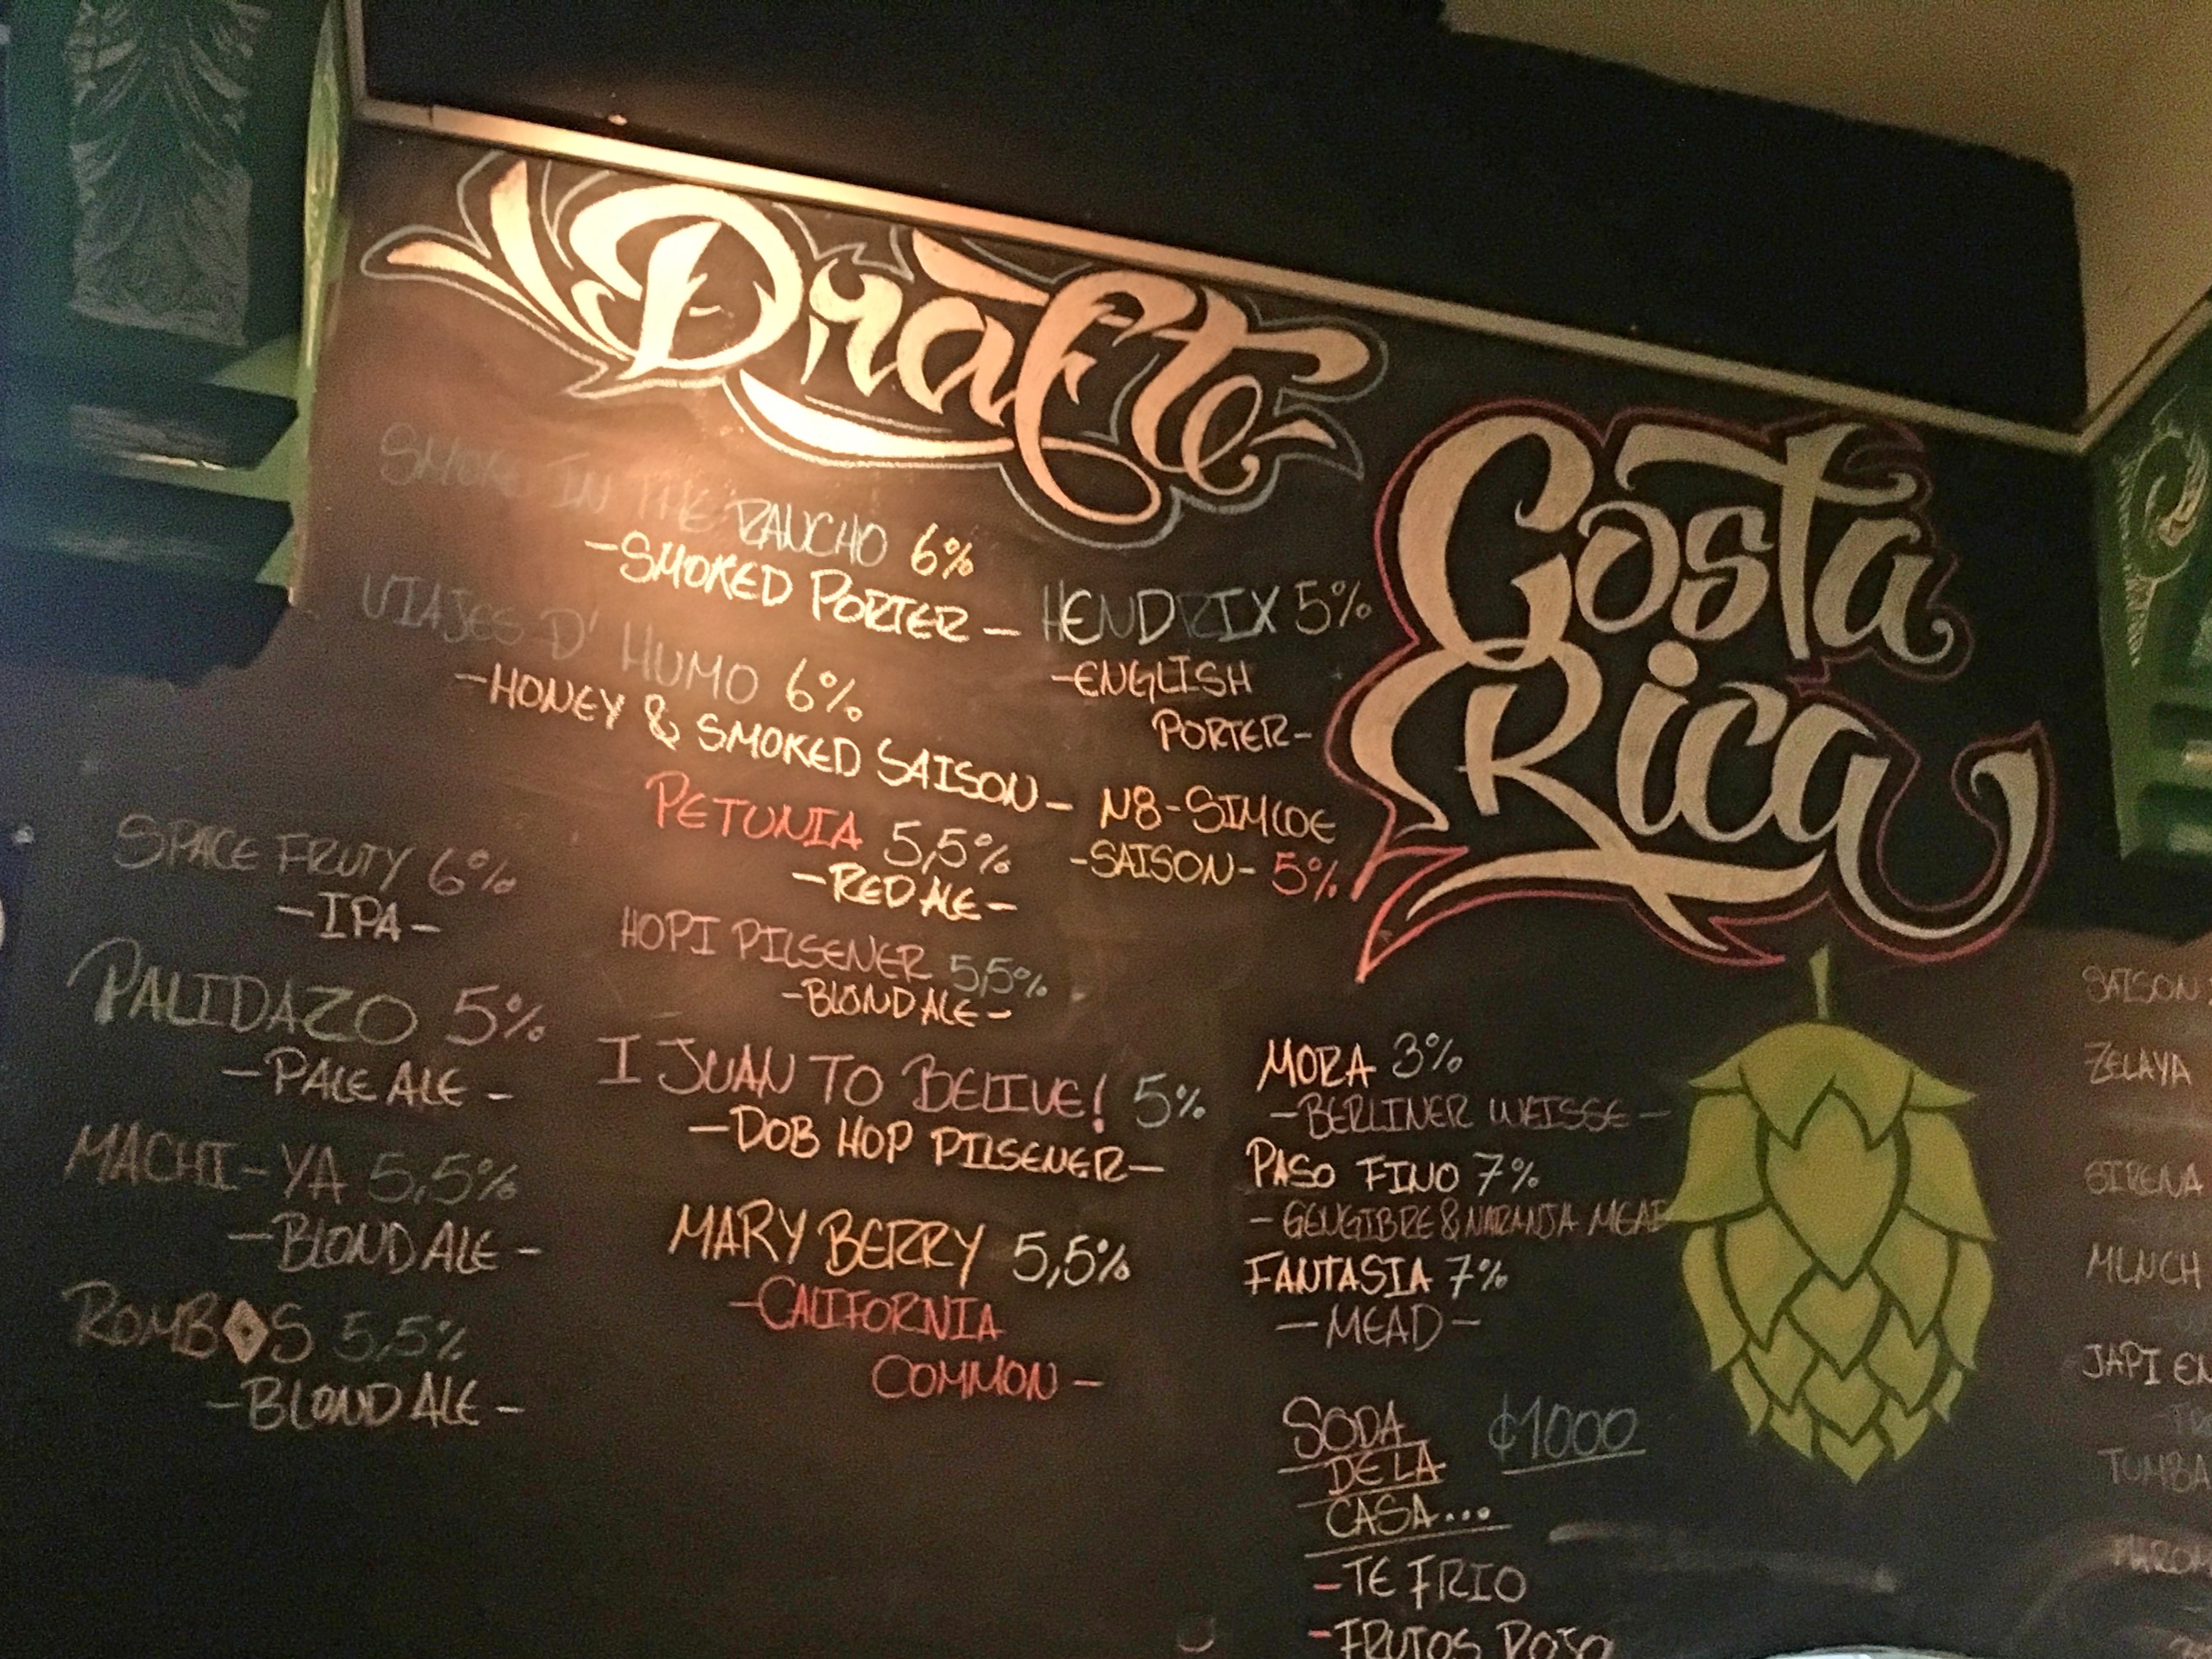 Drafte
SMOKE IN THE RAUCHO 6%
-SMOKED PORTER-
VIAJES D' HUMO 6%
-HONEY & SMOKED SAISON-
PETUNIA 5,5%
-RED ALE-
HOPI PILSENER 5,5%
-BLOND ALE-
I JUAN TO BELIVE! 5%
-DOB HOP PILSENER-
MARY BERRY 5,5%
-CALIFORNIA
COMMON-
SPACE FRUTY 6%
-IPA-
PALIDAZO 5%
-PALE ALE-
MACHI-YA 5,5%
-BLOND ALE-
ROMBOS 5,5%
-BLOND ALE-
HENDRIX 5%
-ENGLISH
PORTER-
N8-SIMCOE
-SAISON- 5%
Costa
Rica
MORA 3%
-BERLINER WEISSE-
PASO FINO 7%
-GENGIBRE & NARANJA MEAD
FANTASIA 7%
-MEAD-
SODA ₡1000
DE LA
CASA...
-TE FRIO
-FRUTOS ROJO
SAISON
ZELAYA
SIRENA
MUNCH
JAPI EN
TUMBA